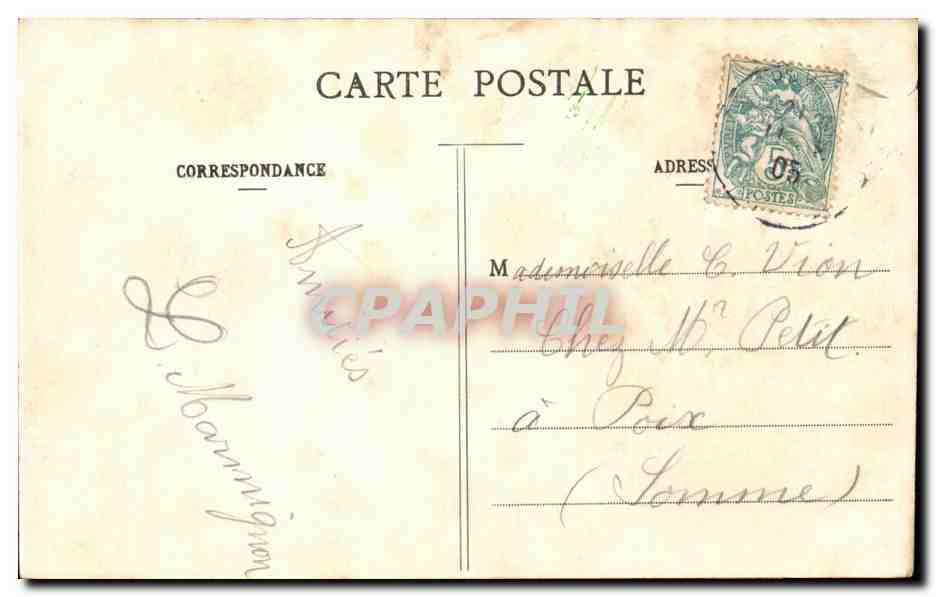 CARTE POSTALE
CORRESPONDANCE
ADRESS
05
5
POSTES
Amitiés
L. Marmignon
Mademoiselle C. Vion
Chez Mr. Petit.
à Poix
(Somme)
CPAPHIL